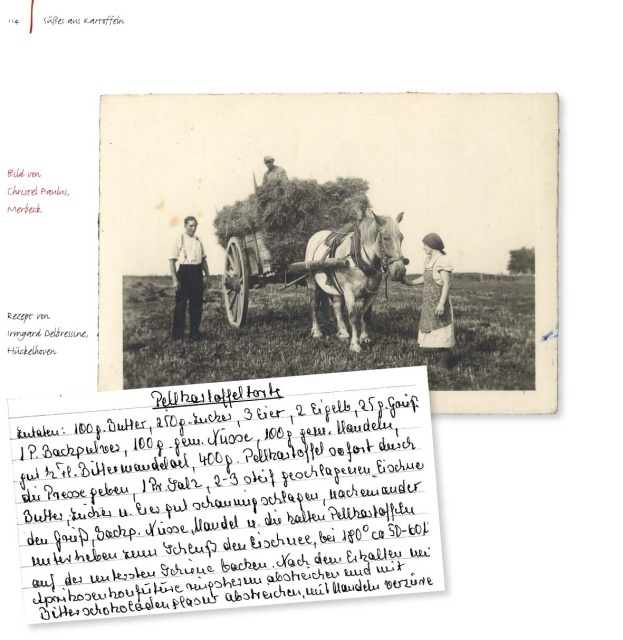 114
Süßes aus Kartoffeln
Bild von
Christel Paulus,
Merbeck
Rezept von
Irmgard Delbressine,
Hückelhoven
Pellkartoffeltorte
Zutaten: 100 g. Butter, 250 g. Zucker, 3 Eier, 2 Eigelb, 25 g. Grieß
1 P. Backpulver, 100 g. gem. Nüsse, 100 g. gem. Mandeln,
gut ½ Fl. Bittermandelöl, 400 g. Pellkartoffel sofort durch
die Presse geben, 1 Pr. Salz, 2-3 steif geschlagenen Eischnee
Butter, Zucker u. Eier gut schaumig schlagen, nacheinander
den Grieß, Backp. Nüsse, Mandel u. die kalten Pellkartoffeln
unterheben zum Schluß den Eischnee, bei 180° ca 50-60
auf der untersten Schiene backen. Nach dem Erkalten mit
Aprikosenkonfitüre ringsherum abstreichen und mit
Bitterschokoladenglasur abstreichen, mit Mandeln verziere